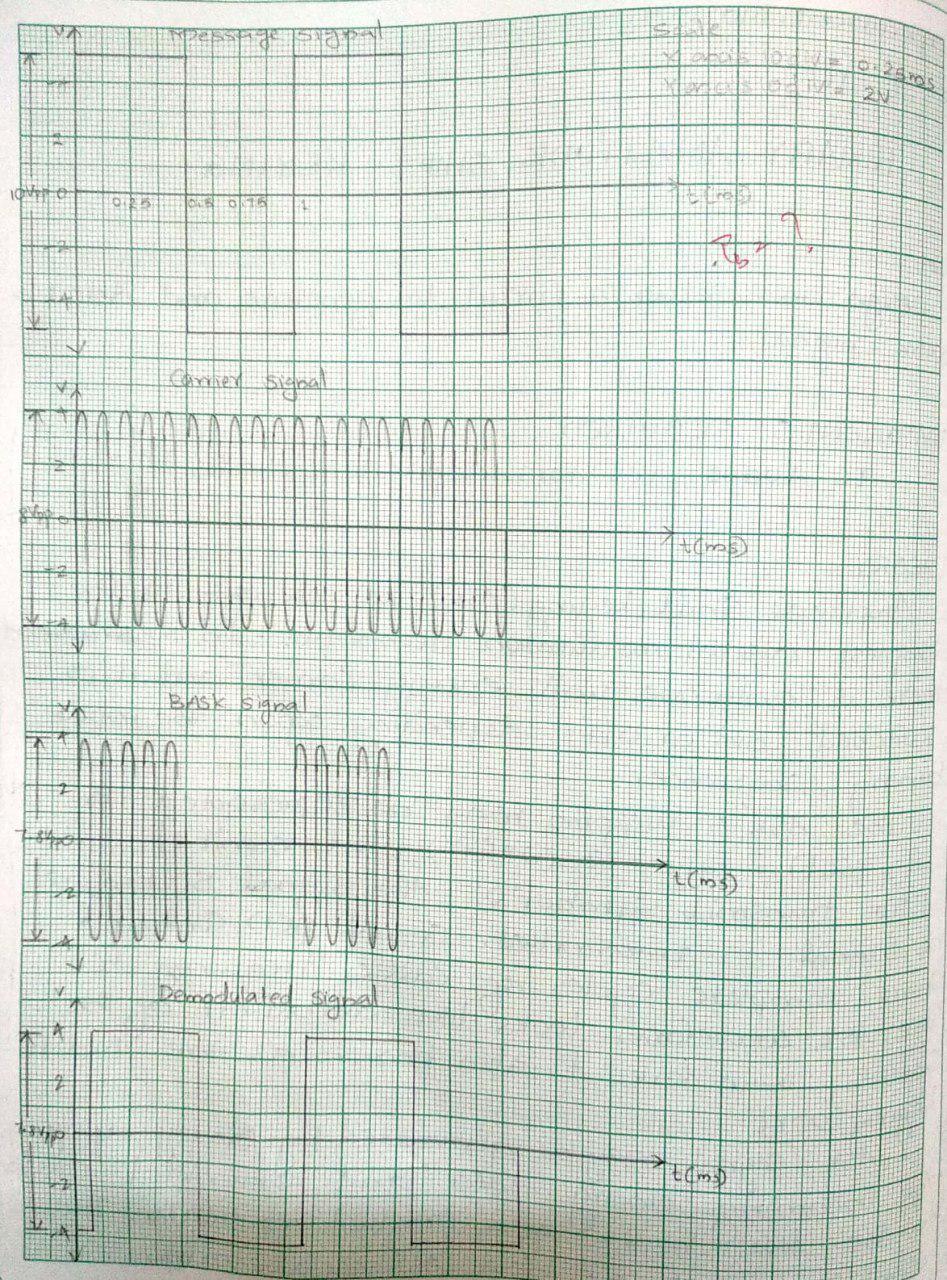 V
Message signal
Scale
X axis 0div = 0.25ms
Y axis 0div = 2V
2
10Vpp 0
0.25 0.5 0.75 1
t(ms)
Tb = ?
-2
-4
Carrier signal
V
4
2
8Vpp 0
t(ms)
-2
-4
BASK signal
V
4
2
7.8Vpp 0
t(ms)
-2
-4
Demodulated signal
V
4
2
7.8Vpp
t(ms)
-2
-4